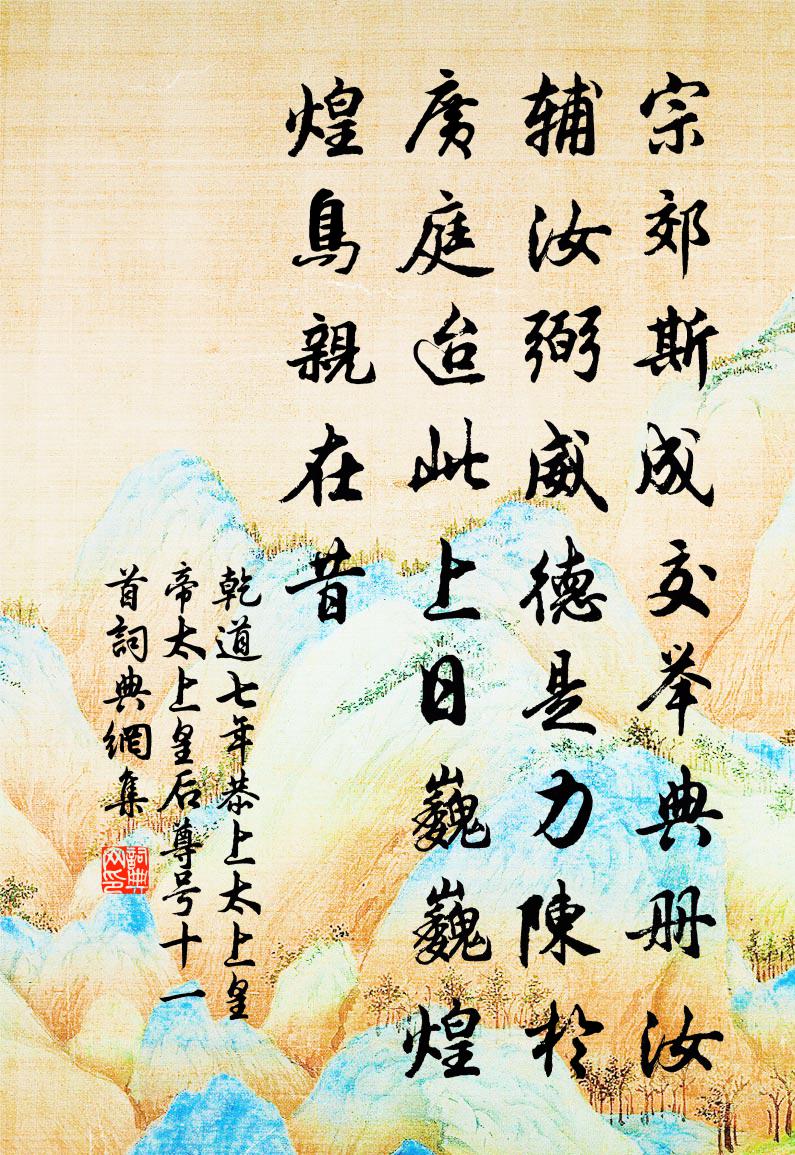 宗郊斯成交举典册汝
辅汝弼威德是力陳於
廣庭迨此上日巍巍煌
煌鳥親在昔
乾道七年恭上太上皇
帝太上皇后尊号十一
首詞典網集
詞典